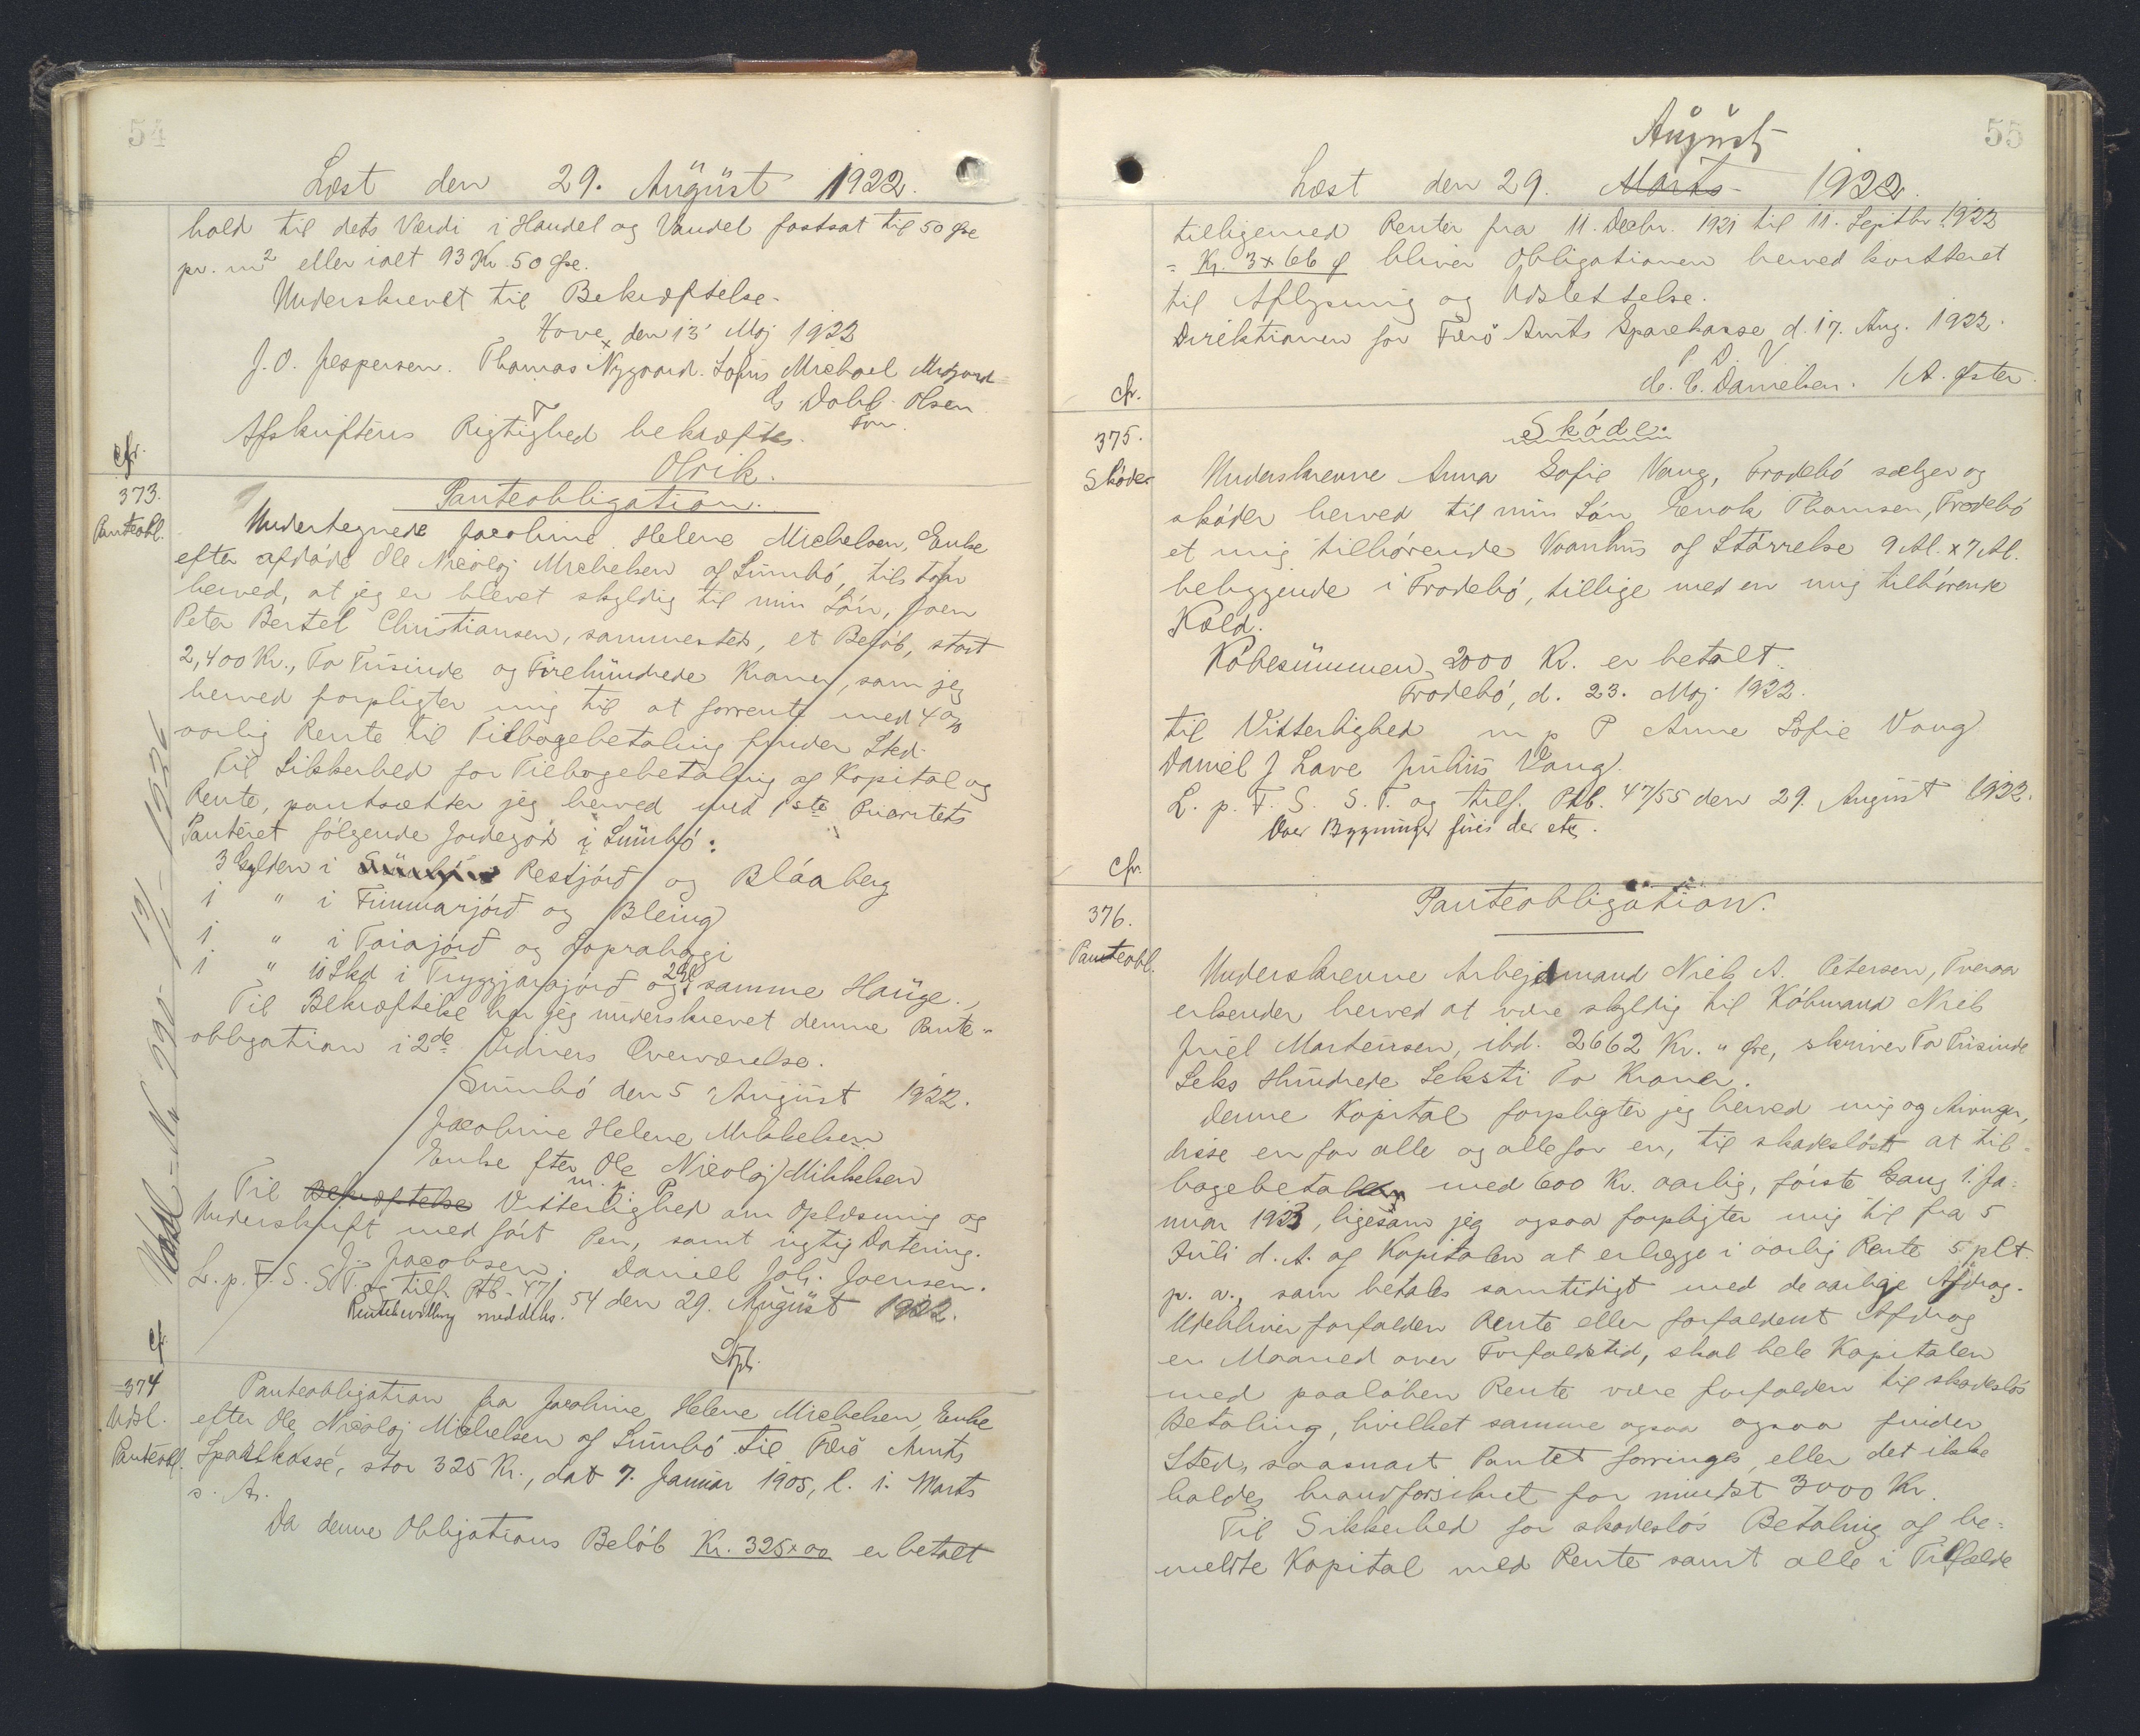 54
Læst den 29. August 1922.
hold til dets Værdi i Handel og Vandel fastsat til 50 Øre
pr. m² eller ialt 93 Kr. 50 Øre.
Underskrevet til Bekræftelse.
Hove, den 13' Maj 1922
J. O. Jespersen. Thomas Nygaard. Lofus Michael Midjord
G. Dahl-Olsen
Fm.
Afskriftens Rigtighed bekræftes.
Olrik.
cfr.
373.
Panteobl.
Panteobligation.
Undertegnede Jacobine Helene Michelsen, Enke
efter afdøde Ole Nicolaj Michelsen af Sumbø, tilstaar
herved, at jeg er blevet skyldig til min Søn, Joen
Peter Bertel Christiansen, sammesteds, et Beløb, stort
2,400 Kr., To Tusinde og Firehundrede Kroner, som jeg
herved forpligter mig til at forrente med 4 %
aarlig Rente til Tilbagebetaling finder Sted.
Til Sikkerhed for Tilbagebetaling af Kapital og
Rente, pantsætter jeg herved med 1ste Prioritets
Panteret følgende Jordegods i Sumbø:
3 Gylden i Restjørd og Bláaberg
1 " i Fimmarjørd og Bleing
1 " i Taiajørd og Loprahagi
1 " 10 Skd i Tryggjarajørd og 2 Gl samme Hauge.
Til Bekræftelse har jeg underskrevet denne Pante-
obligation i 2de Vidners Overværelse.
Sumbø den 5 August 1922.
Jacobine Helene Mikkelsen
Enke efter Ole Nicolaj Mikkelsen
m. p. P.
Til Bekræftelse Vitterlighed om Oplæsning og
Underskrift med ført Pen, samt rigtig Datering.
J. Jacobsen. Daniel Joh. Joensen.
L. p. F. S. S. T. og tilf. Ptb. 47/54 den 29. August 1922.
Rentebevilling meddeles.
Udsl. - No 290 - 12/11 - 1926
cfr.
Sfpl.
374
Udsl.
Panteobl.
Panteobligation fra Jacobine Helene Michelsen, Enke
efter Ole Nicolaj Michelsen af Sumbø til Færø Amts
Sparekasse, stor 325 Kr., dat 7. Januar 1905, l. 1. Marts
s. A.
Da denne Obligations Beløb Kr. 325x00 er betalt
55
August
Læst den 29. Marts 1922.
tilligemed Renter fra 11. Decbr. 1921 til 11. Septbr 1922
= Kr. 3x66 Ø bliver Obligationen herved kvitteret
til Aflysning og Udslettelse.
Direktionen for Færø Amts Sparekasse d. 17. Aug. 1922.
P. D. V.
C. C. Danielsen. K A. Øster.
cfr.
375.
Skøde
Skøde.
Underskrevne Anna Sofie Vang, Frodebø sælger og
skøder herved til min Søn Enok Thomsen, Frodebø
et mig tilhørende Vaanhus af Størrelse 9 Al. x 7 Al.
beliggende i Frodebø, tillige med en mig tilhørende
Kæld.
Købesummen 2000 Kr. er betalt.
Frodebø, d. 23. Maj 1922.
til Vitterlighed m p P Anne Sofie Vang
Daniel J Lave Julius Vang.
L. p. F. S. S. T. og tilf. Ptb. 47/55 den 29. August 1922.
Over Bygninger føres der etc.
cfr.
376.
Panteobl.
Panteobligation.
Underskrevne Arbejdsmand Niels A. Petersen, Tveraa
erkender herved at være skyldig til Købmand Niels
Juel Mortensen, ibd. 2662 Kr. " Øre, skriver To Tusinde
Seks Hundrede Seksti To Kroner.
Denne Kapital forpligter jeg herved mig og Arvinger,
disse en for alle og alle for en, til skadesløst at til-
bagebetale med 600 Kr. aarlig, første Gang 1. Ja-
nuar 1923, ligesom jeg ogsaa forpligter mig til fra 5
Juli d. A. af Kapitalen at erlægge i aarlig Rente 5 pCt.
p. a., som betales samtidigt med de aarlige Afdrag.
Udebliver forfalden Rente eller forfaldent Afdrag
en Maaned over Forfaldstid, skal hele Kapitalen
med paaløben Rente være forfalden til skadesløs
Betaling, hvilket samme ogsaa ogsaa finder
Sted, saasnart Pantet forringes, eller det ikke
holdes brandforsikret for mindst 3000 Kr.
Til Sikkerhed for skadesløs Betaling af be-
meldte Kapital med Rente samt alle i Tilfælde